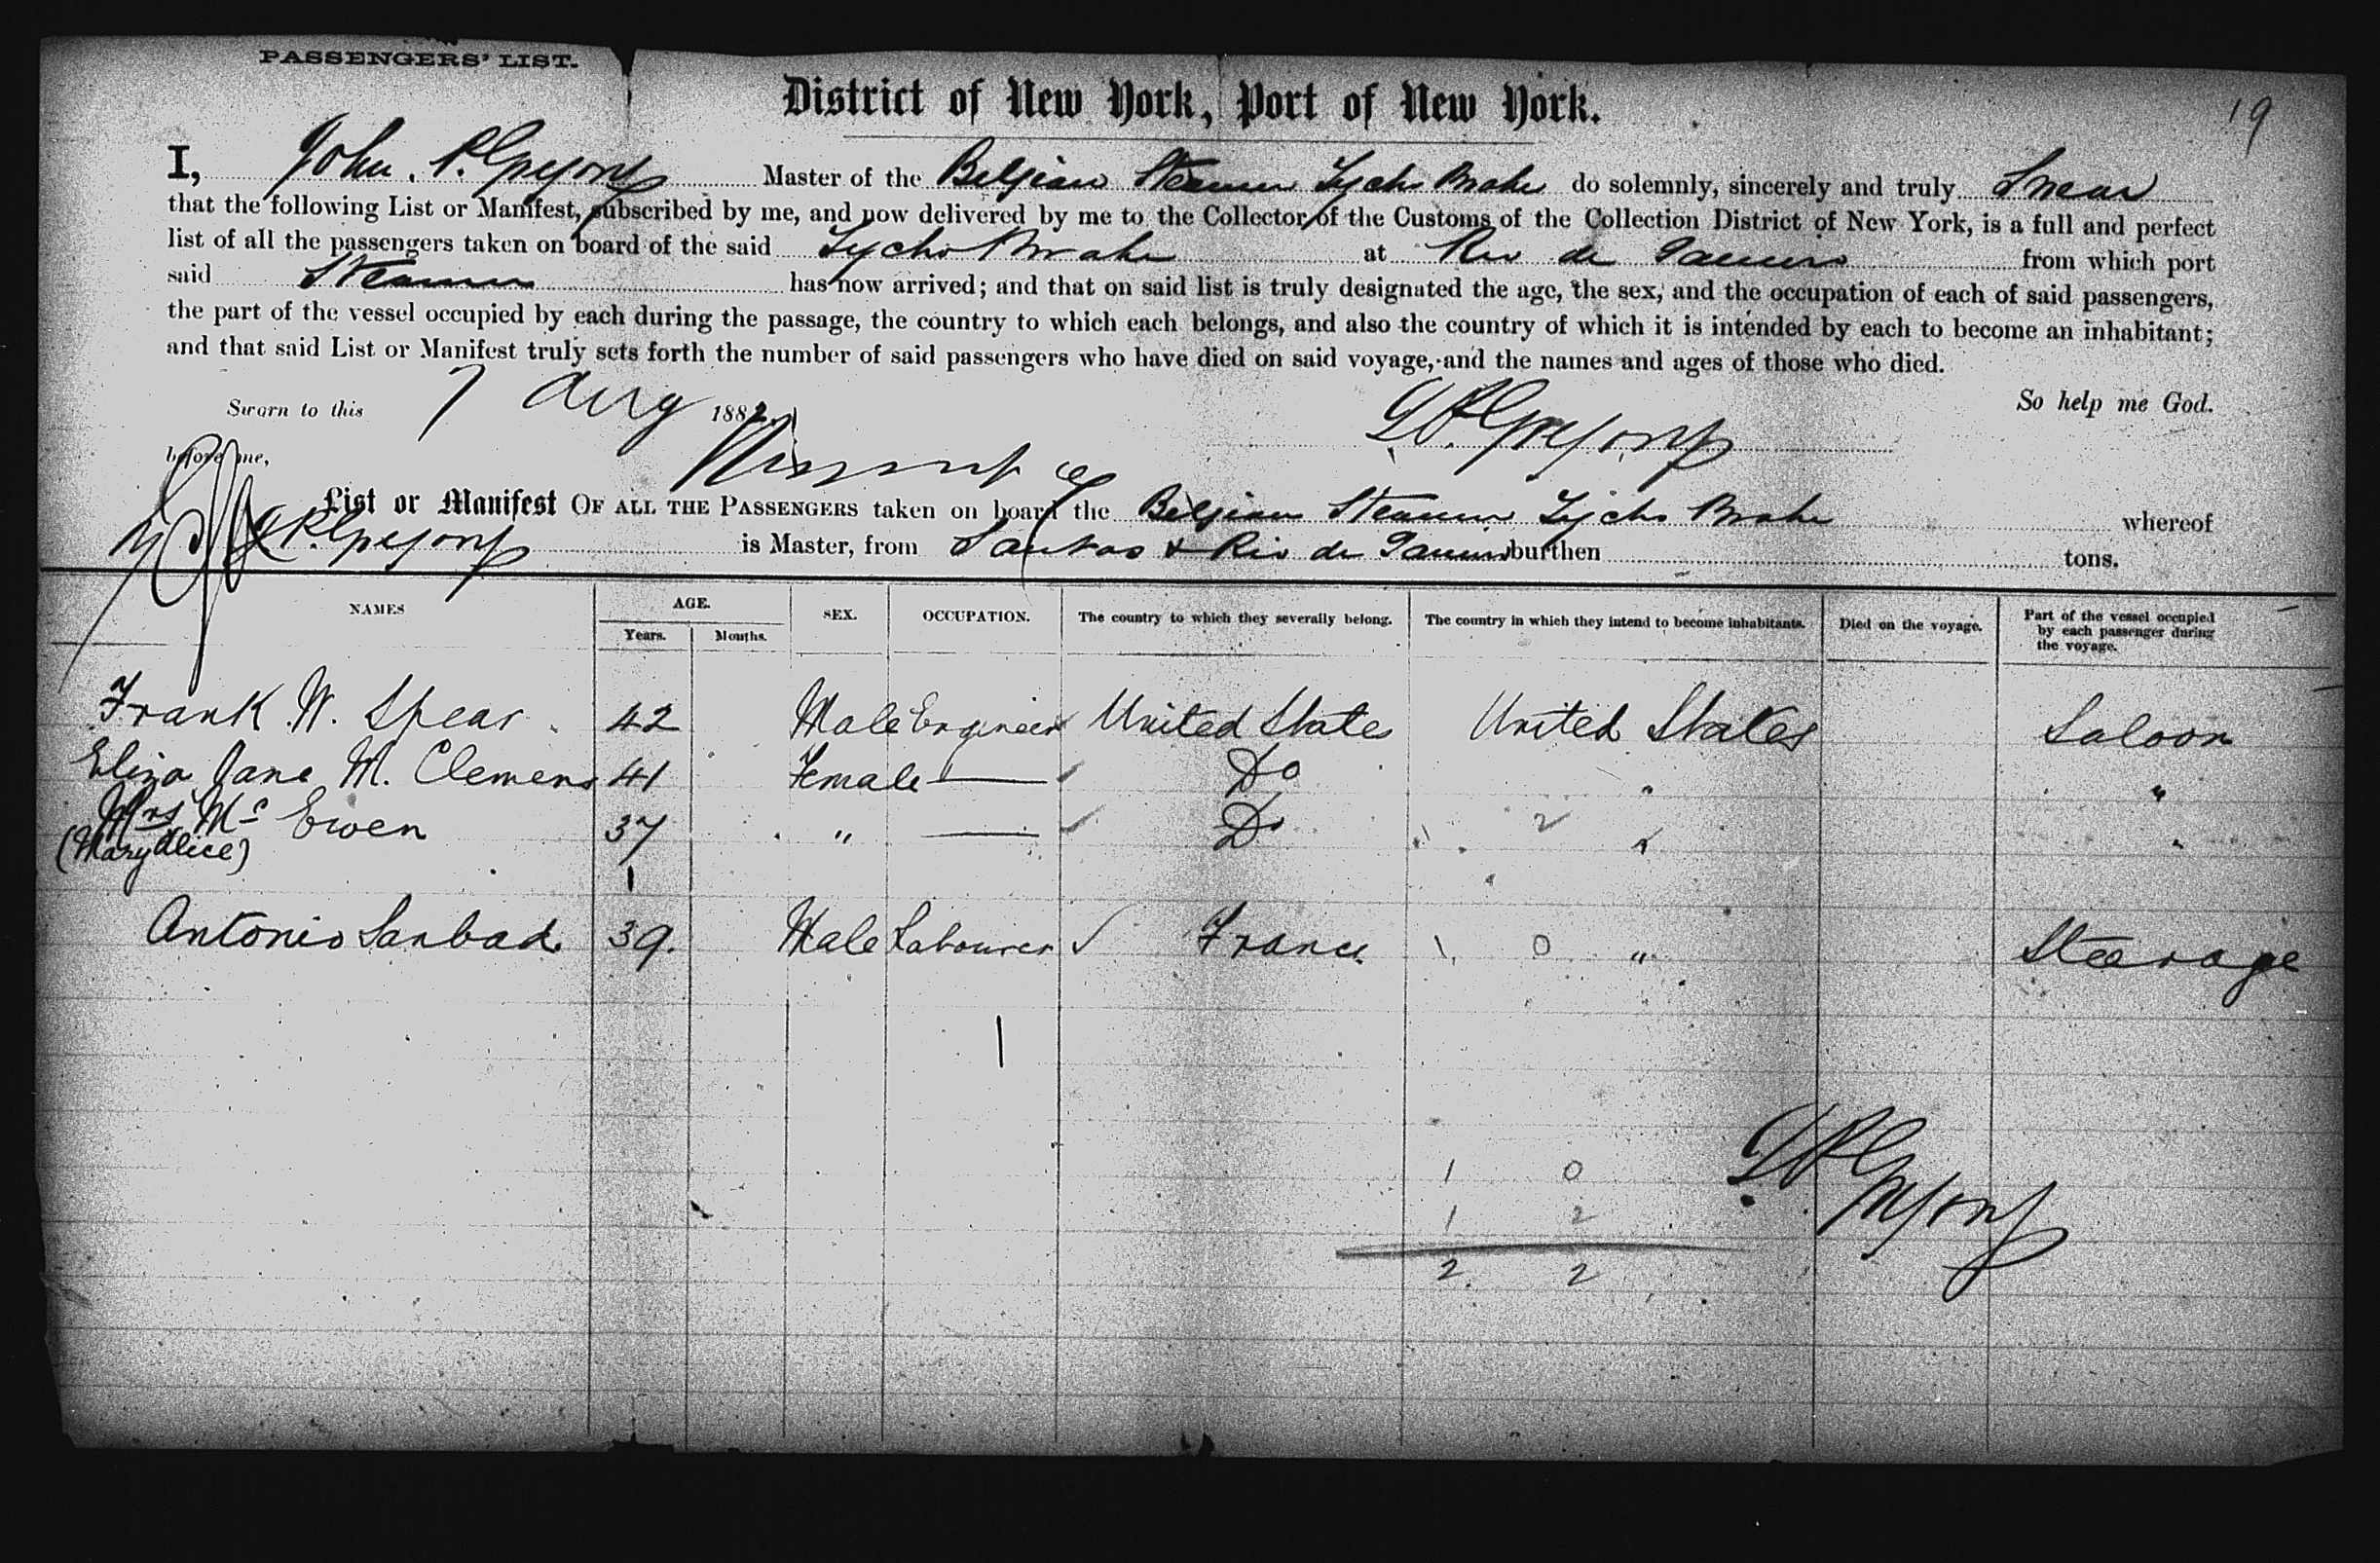 PASSENGERS' LIST.
District of New York, Port of New York.
19
I, John. P. Master of the Belgian Steamer Tycho Brahe do solemnly, sincerely and truly Swear
that the following List or Manifest, subscribed by me, and now delivered by me to the Collector of the Customs of the Collection District of New York, is a full and perfect
list of all the passengers taken on board of the said Tycho Brahe at Rio de Janeiro from which port
said Steamer has now arrived; and that on said list is truly designated the age, the sex, and the occupation of each of said passengers,
the part of the vessel occupied by each during the passage, the country to which each belongs, and also the country of which it is intended by each to become an inhabitant;
and that said List or Manifest truly sets forth the number of said passengers who have died on said voyage, and the names and ages of those who died.
Sworn to this 7 Aug 1882 So help me God.
before me,
List or Manifest OF ALL THE PASSENGERS taken on board the Belgian Steamer Tycho Brahe whereof
is Master, from Santos & Rio de Janeiro burthen tons.
NAMES AGE. Years. Months. SEX. OCCUPATION. The country to which they severally belong. The country in which they intend to become inhabitants. Died on the voyage. Part of the vessel occupied by each passenger during the voyage.
Frank W. Spear 42 Male Engineer United States United States Saloon
Eliza Jane M. Clemens 41 Female — Do " "
Mrs Mc Ewen 37 " — Do 1 2 " "
(Mary Alice)
1
Antonio Sanbad 39. Male Labourer ✓ France 1 0 " Steerage
1
1 0
1 2
2 2